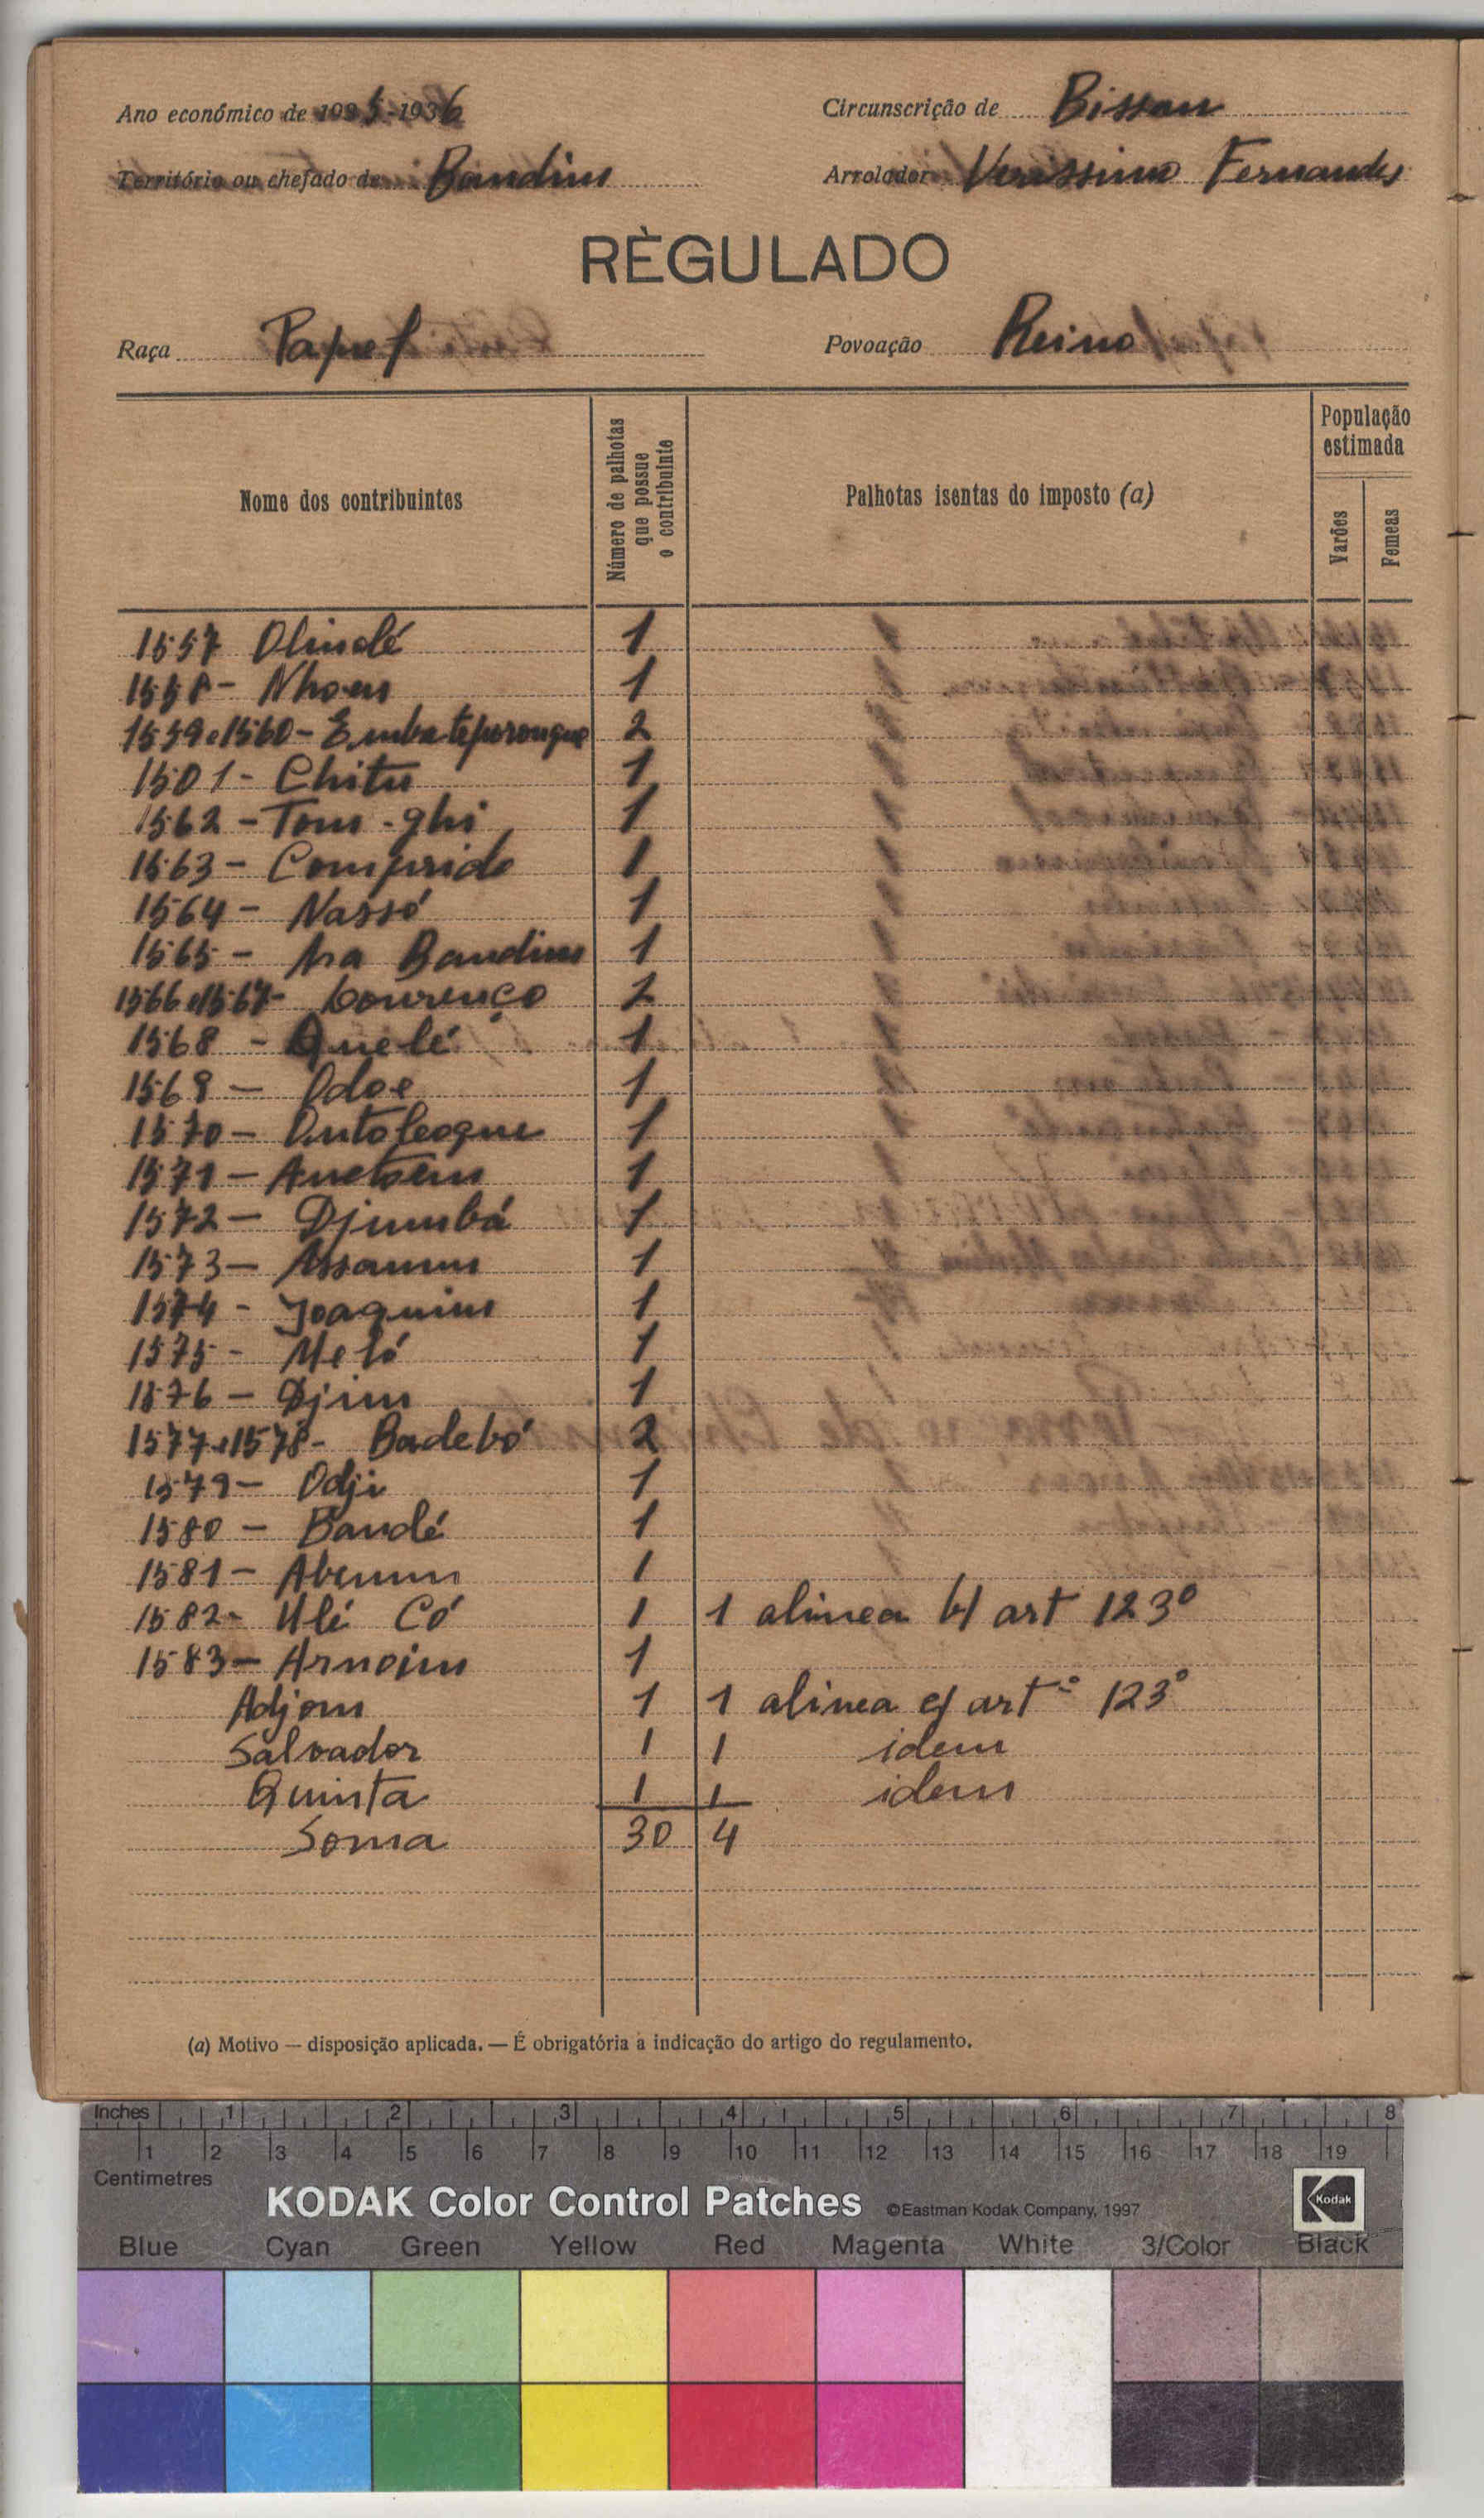 Ano económico de 1935-1936
Circunscrição de Bissau
Território ou chefado de Bandim
Arrolador Verissimo Fernandes
RÈGULADO
Raça Papel
Povoação Reino
Nome dos contribuintes
Número de palhotas que possue o contribuinte
Palhotas isentas do imposto (a)
População estimada
Varões
Femeas
1557 Olindé 1
1558- Nhoen 1
1559 e 1560- Embateporongue 2
1501- Chitu 1
1562 - Tom-ghi 1
1563 - Comprido 1
1564 - Nassó 1
1565 - Ara Bandim 1
1566 e 1567- Lourenço 2
1568 - Quelé 1
1569 - Odoe 1
1570 - Ontofeogue 1
1571 - Anetóem 1
1572 - Djumbá 1
1573 - Assamum 1
1574 - Joaquim 1
1575 - Meló 1
1576 - Djim 1
1577 e 1578- Badebó 2
1579 - Odji 1
1580 - Bandé 1
1581 - Abemum 1
1582- Ulé Có 1 1 alinea b) art 123º
1583 - Arnoim 1
Adjom 1 1 alinea e) artº 123º
Salvador 1 1 idem
Quinta 1 1 idem
Soma 30 4
(a) Motivo — disposição aplicada. — É obrigatória a indicação do artigo do regulamento.
Inches 1 2 3 4 5 6 7 8
1 2 3 4 5 6 7 8 9 10 11 12 13 14 15 16 17 18 19
Centimetres
KODAK Color Control Patches ©Eastman Kodak Company, 1997 Kodak
Blue Cyan Green Yellow Red Magenta White 3/Color Black